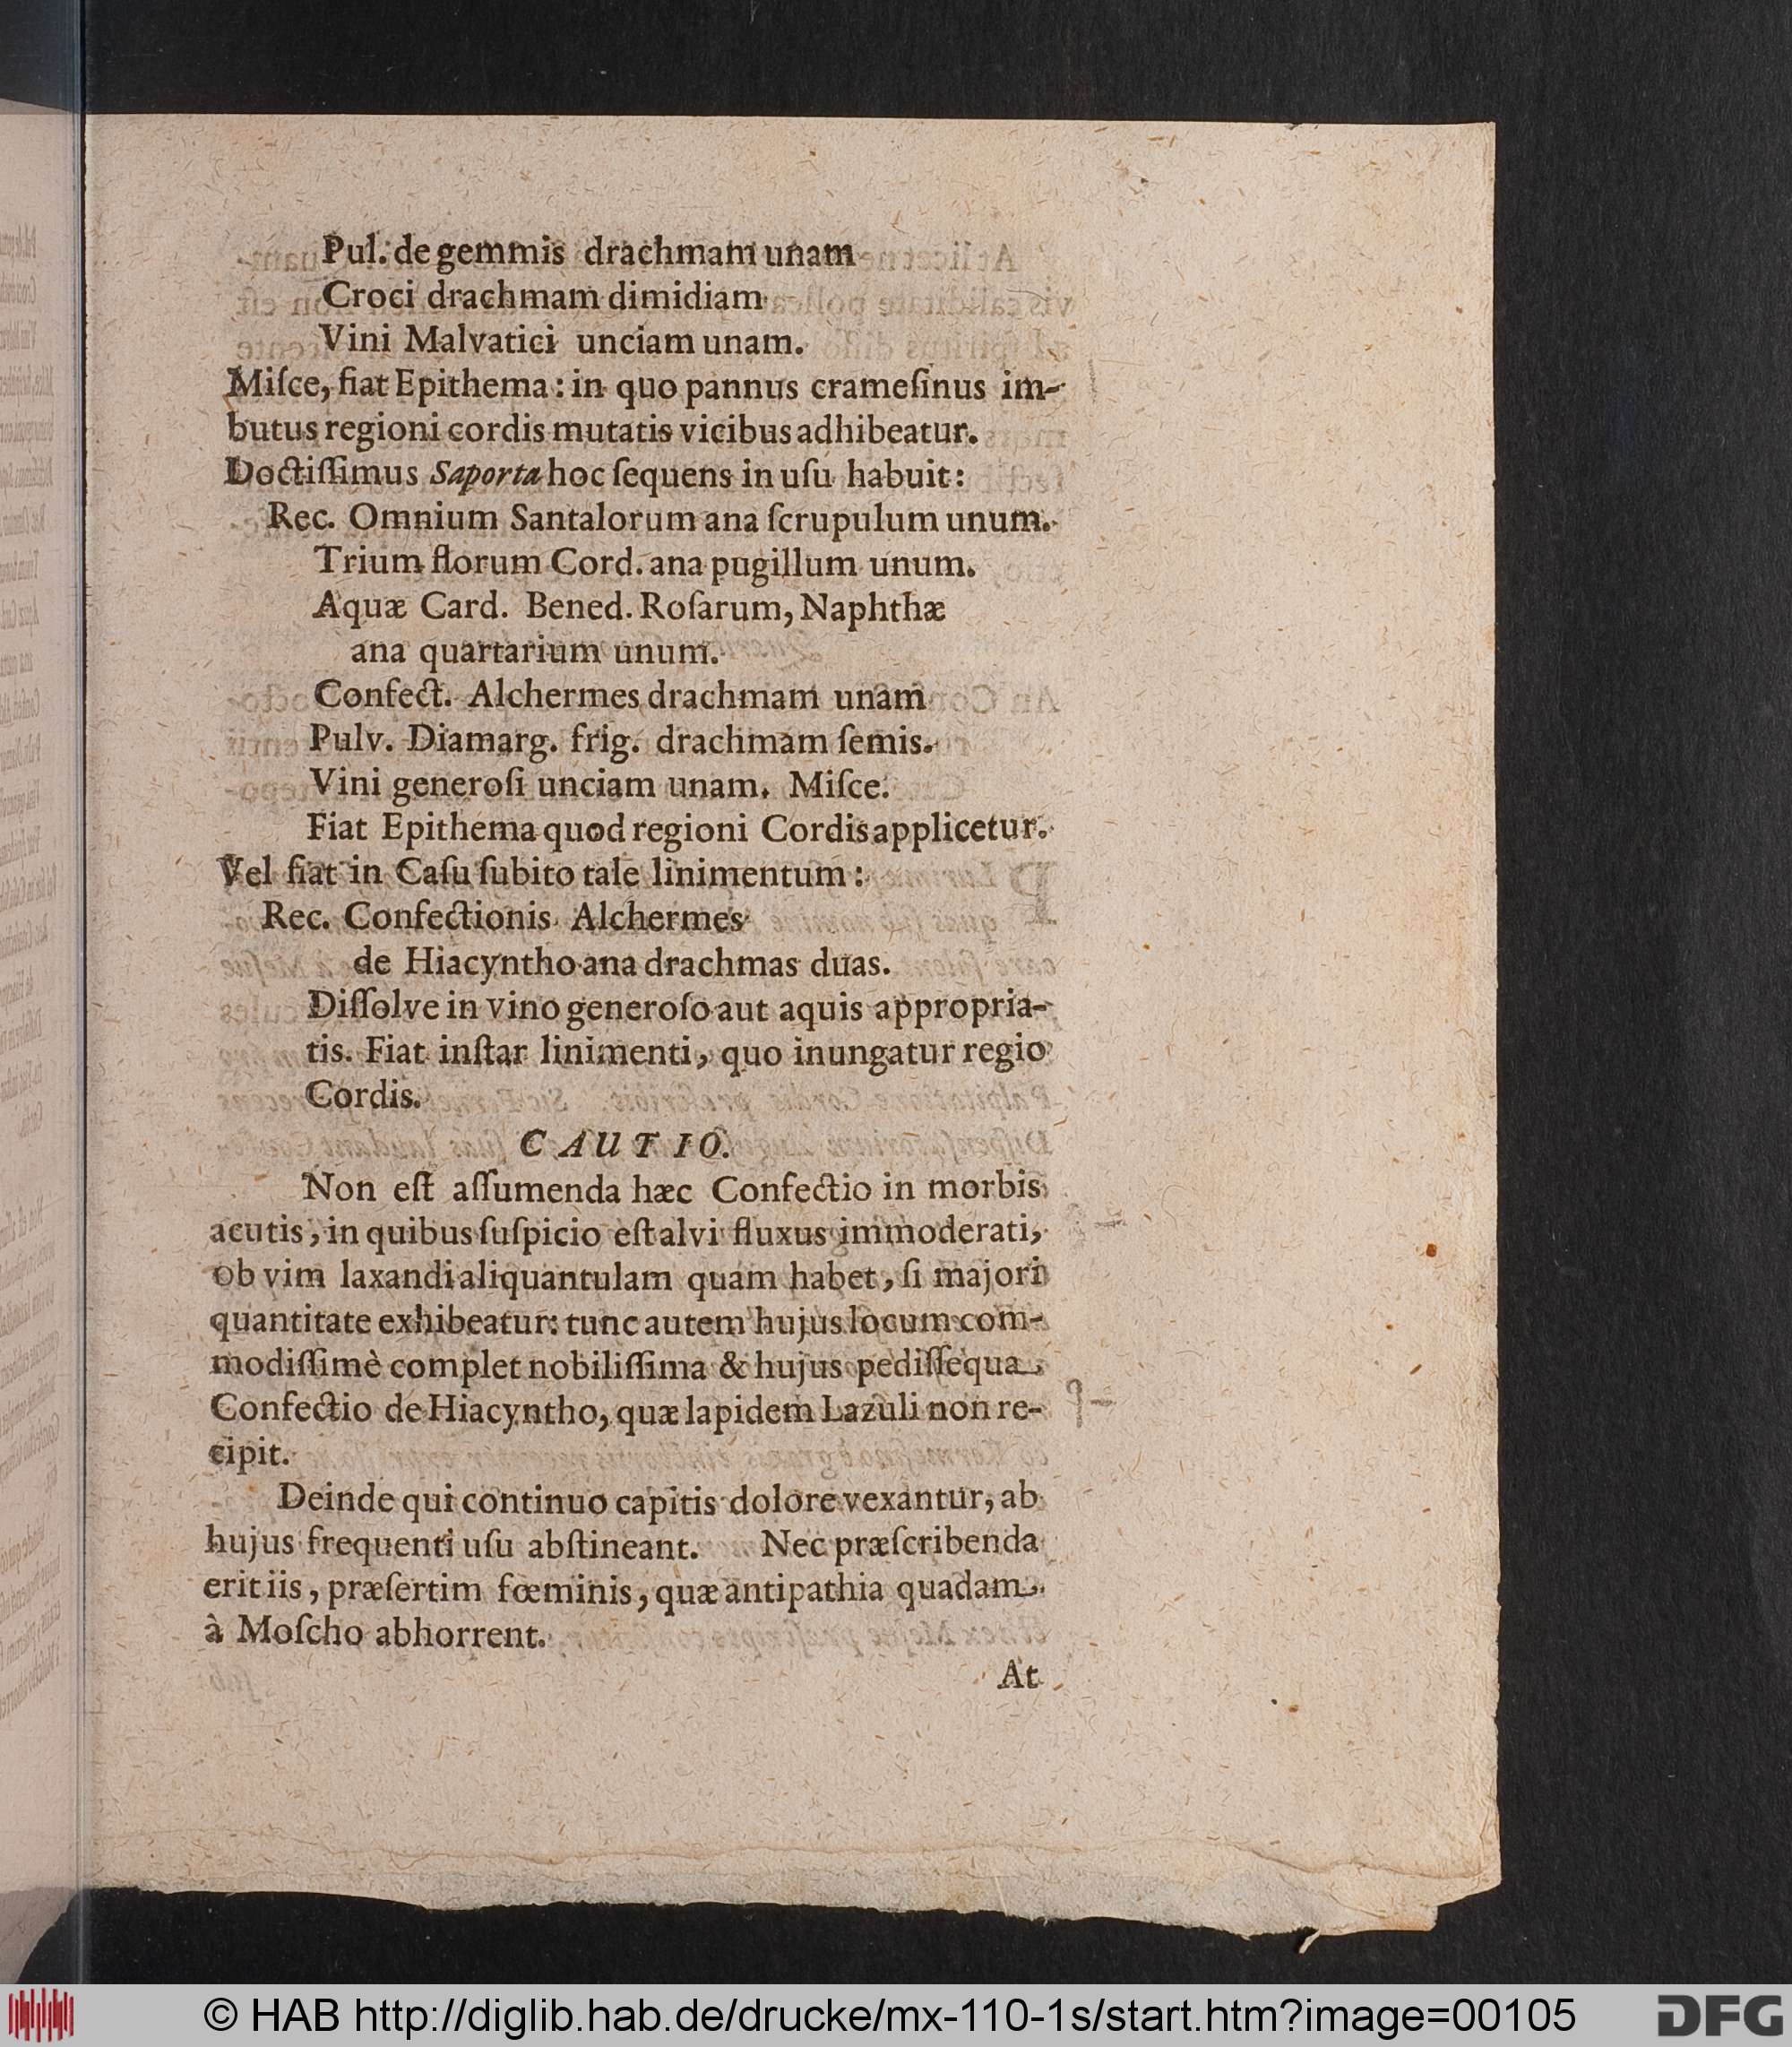 Pul. de gemmis drachmam unam
Croci drachmam dimidiam
Vini Malvatici unciam unam.
Miſce, fiat Epithema: in quo pannus crameſinus im-
butus regioni cordis mutatis vicibus adhibeatur.
Doctiſſimus Saporta hoc ſequens in uſu habuit:
Rec. Omnium Santalorum ana ſcrupulum unum.
Trium florum Cord. ana pugillum unum.
Aquæ Card. Bened. Roſarum, Naphthæ
ana quartarium unum.
Confect. Alchermes drachmam unam
Pulv. Diamarg. frig. drachmam ſemis.
Vini generoſi unciam unam. Miſce.
Fiat Epithema quod regioni Cordis applicetur.
Vel fiat in Caſu ſubito tale linimentum:
Rec. Confectionis Alchermes
de Hiacyntho ana drachmas duas.
Diſſolve in vino generoſo aut aquis appropria-
tis. Fiat inſtar linimenti, quo inungatur regio
Cordis.
CAUTIO.
Non eſt aſſumenda hæc Confectio in morbis
acutis, in quibus ſuſpicio eſt alvi fluxus immoderati,
ob vim laxandi aliquantulam quam habet, ſi majori
quantitate exhibeatur: tunc autem hujus locum com-
modiſſimè complet nobiliſſima & hujus pediſſequa
Confectio de Hiacyntho, quæ lapidem Lazuli non re-
cipit.
Deinde qui continuo capitis dolore vexantur, ab
hujus frequenti uſu abſtineant. Nec præſcribenda
erit iis, præſertim fœminis, quæ antipathia quadam
à Moſcho abhorrent.
At
© HAB http://diglib.hab.de/drucke/mx-110-1s/start.htm?image=00105
DFG